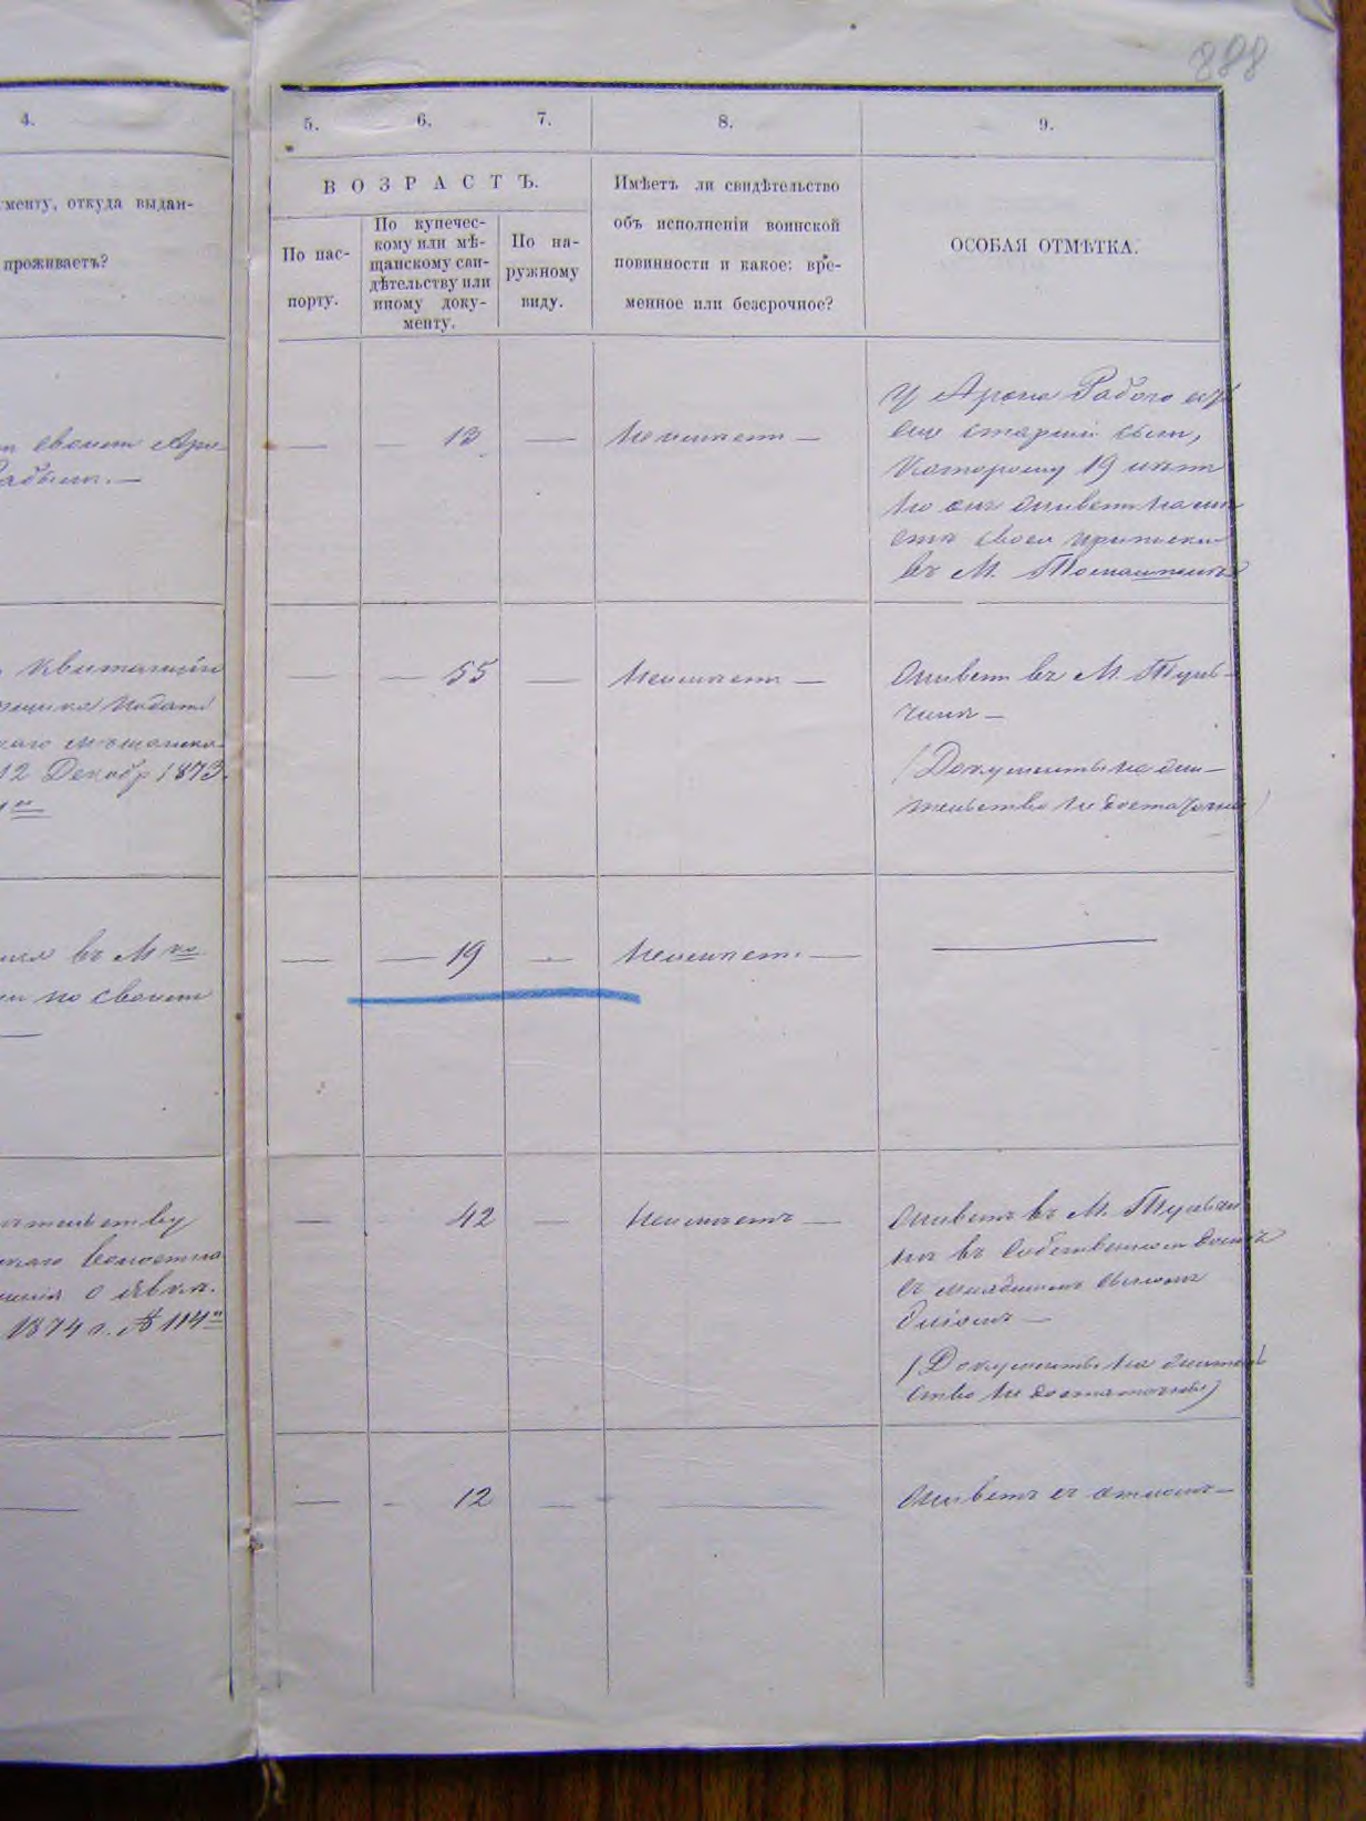 888
4. 5. 6. 7. 8. 9.
менту, откуда выдан-
проживаетъ?
ВОЗРАСТЪ.
По пас-
порту.
По купечес-
кому или мѣ-
щанскому сви-
дѣтельству или
иному доку-
менту.
По на-
ружному
виду.
Имѣетъ ли свидѣтельство
объ исполненіи воинской
повинности и какое: вре-
менное или безсрочное?
ОСОБАЯ ОТМѢТКА.
своим Аро-
— — 13 — Неимѣет —
У Арона Рабого есть
еще старший сын,
Которому 19 лѣт
Но он живет на мѣ
стѣ своей приписки
въ М. Томашполѣ
Квитанціи
Подат
12 Декабр 1873.
— — 55 — Неимѣет —
Живет въ М. Туль-
чинѣ —
(Документы на жи-
тельство не достаточны)
въ М
по своим
— — 19 — Неимѣет. —
—
жительству
Волостна
о явкѣ.
1874 г. № 114
— 42 — Неимѣетъ —
Живетъ въ М. Тульчи
нѣ въ собственном домѣ
съ младшимъ сыномъ
—
(Документы на житель
ство не достаточны)
— — 12 — —
Живетъ съ отцомъ —